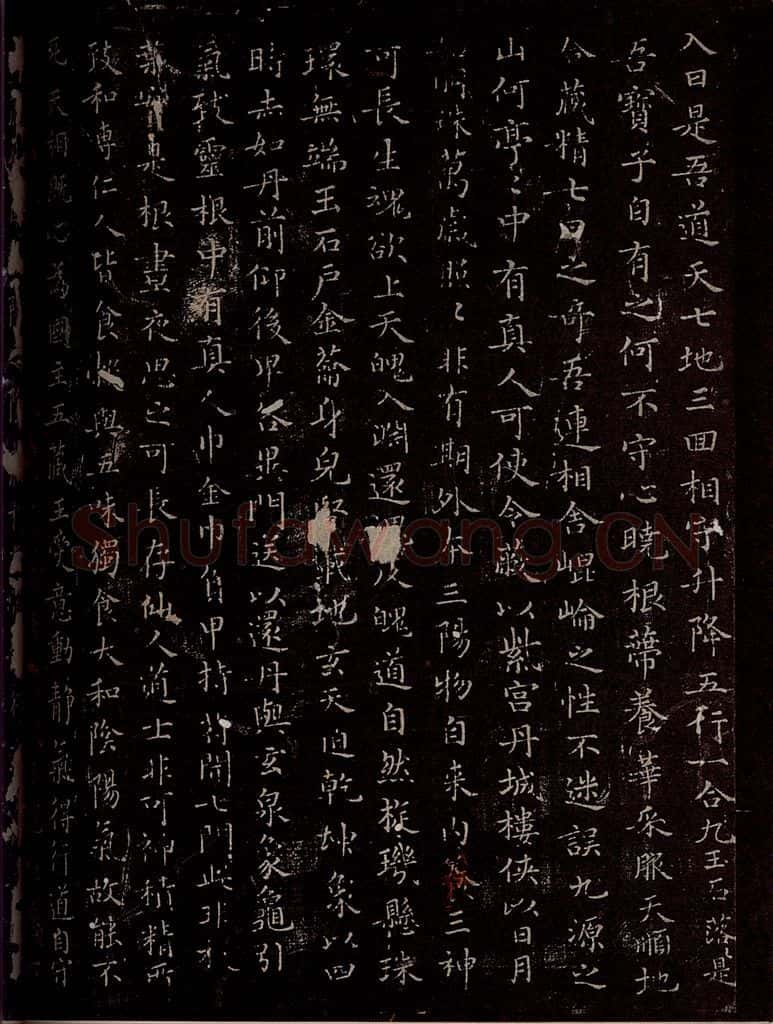 入曰是吾道天七地三回相守升降五行一合九玉石落是
吾寶子自有之何不守心曉根蔕養華采服天順地
合藏精七日之奇吾連相舍崐崘之性不迷誤九源之
山何亭〻中有真人可使令蔽以紫宮丹城樓俠以日月
如明珠萬歲照〻非有期外本三陽物自來內養三神
可長生魂欲上天魄入淵還魂反魄道自然旋璣懸珠
環無端玉石戶金籥身兒堅載地玄天迫乾坤象以四
時赤如丹前仰後卑各異門送以還丹與玄泉象龜引
氣致靈根中有真人巾金巾負甲持符開七門此非枝
葉實是根晝夜思之可長存仙人道士非可神積精所
致和專仁人皆食穀與五味獨食大和陰陽氣故能不
死天相既心為國主五藏王受意動靜氣得行道自守
Shufawang.CN